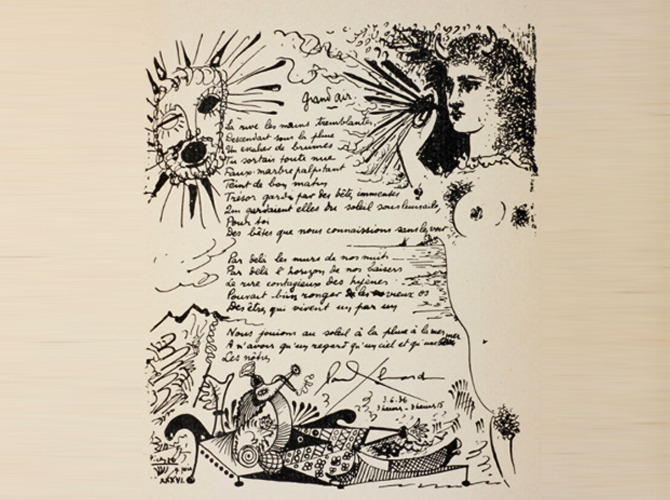 grand air.
La rive les mains tremblantes
Descendait sous la pluie
Un escalier de brumes
Tu sortais toute nue
Faux marbre palpitant
Teint de bon matin
Trésor gardé par des bêtes immenses
Qui gardaient elles du soleil sous leurs ailes
Pour toi
Des bêtes que nous connaissions sans les voir
Par delà les murs de nos nuits
Par delà l'horizon de nos baisers
Le rire contagieux des hyènes
Pouvait bien ronger les vieux os
Des êtres qui vivent un par un
Nous jouions au soleil à la pluie à la mer
A n'avoir qu'un regard qu'un ciel et qu'une
Les nôtres
Paul Eluard
3.6.36
3 heures - 3 heures 15
XXXVI.